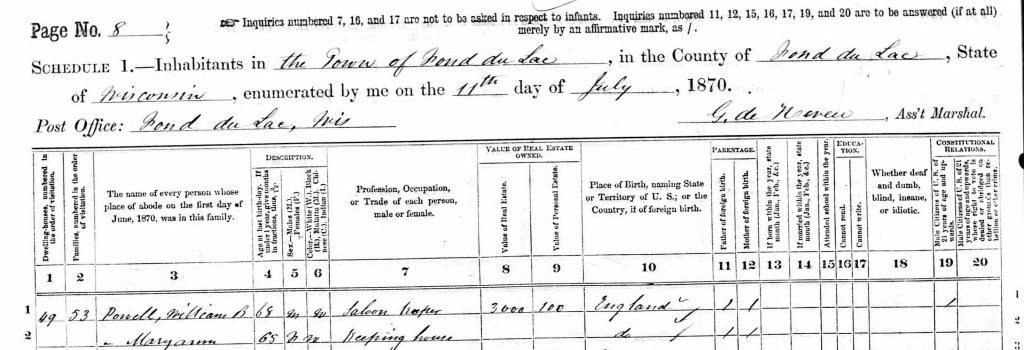 ☞ Inquiries numbered 7, 16, and 17 are not to be asked in respect to infants. Inquiries numbered 11, 12, 15, 16, 17, 19, and 20 are to be answered (if at all)
Page No. 8 merely by an affirmative mark, as /.
SCHEDULE 1.—Inhabitants in the Town of Fond du Lac, in the County of Fond du Lac, State
of Wisconsin, enumerated by me on the 11th day of July, 1870.
Post Office: Fond du Lac, Wis G. de Neveu, Ass't Marshal.
Dwelling-houses, numbered in the order of visitation.
Families, numbered in the order of visitation.
The name of every person whose place of abode on the first day of June, 1870, was in this family.
DESCRIPTION.
Age at last birth-day. If under 1 year, give months in fractions, thus, 3/12.
Sex.—Males (M.), Females (F.)
Color.—White (W.), Black (B.), Mulatto (M.), Chinese (C.), Indian (I.)
Profession, Occupation, or Trade of each person, male or female.
VALUE OF REAL ESTATE OWNED.
Value of Real Estate.
Value of Personal Estate.
Place of Birth, naming State or Territory of U. S.; or the Country, if of foreign birth.
PARENTAGE.
Father of foreign birth.
Mother of foreign birth.
If born within the year, state month (Jan., Feb., &c.)
If married within the year, state month (Jan., Feb., &c.)
Attended school within the year.
EDUCATION.
Cannot read.
Cannot write.
Whether deaf and dumb, blind, insane, or idiotic.
CONSTITUTIONAL RELATIONS.
Male Citizens of U. S. of 21 years of age and upwards.
Male Citizens of U. S. of 21 years of age and upwards, whose right to vote is denied or abridged on other grounds than rebellion or other crime.
1 2 3 4 5 6 7 8 9 10 11 12 13 14 15 16 17 18 19 20
1 49 53 Powell, William B 68 M W Saloon Keeper 3000 100 England / / / 1
2 — Maryann 65 Keeping house do / / 2